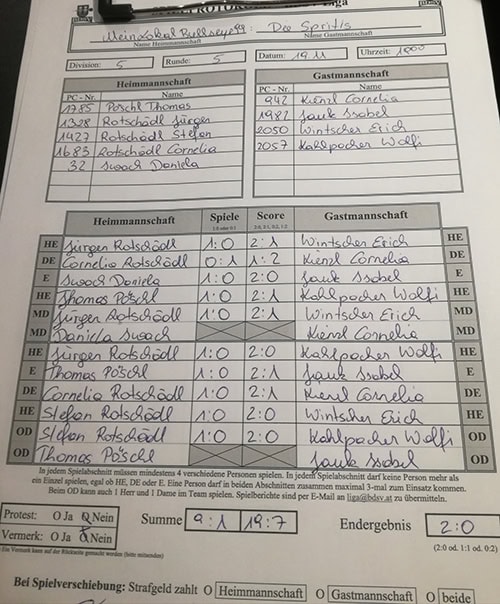 Meinlokal Bullseye : Dee Spritis
Name Heimmannschaft Name Gastmannschaft
Division: 5 Runde: 5 Datum: 19.11 Uhrzeit: 1800
Heimmannschaft Gastmannschaft
PC - Nr. Name PC - Nr. Name
1785 Pöschl Thomas 942 Kienzl Cornelia
1328 Rotschädl Jürgen 1982 Jauk Isabel
1427 Rotschädl Stefan 2050 Wintscher Erich
1683 Rotschädl Cornelia 2057 Kahlpacher Wolfi
32 Swoch Daniela
Heimmannschaft Spiele Score Gastmannschaft
1:0 oder 0:1 2:0, 2:1, 0:2, 1:2
HE Jürgen Rotschädl 1:0 2:1 Wintscher Erich HE
DE Cornelia Rotschädl 0:1 1:2 Kienzl Cornelia DE
E Swoch Daniela 1:0 2:0 Jauk Isabel E
HE Thomas Pöschl 1:0 2:1 Kahlpacher Wolfi HE
MD Jürgen Rotschädl 1:0 2:1 Wintscher Erich MD
MD Daniela Swoch Kienzl Cornelia MD
HE Jürgen Rotschädl 1:0 2:0 Kahlpacher Wolfi HE
E Thomas Pöschl 1:0 2:1 Jauk Isabel E
DE Cornelia Rotschädl 1:0 2:1 Kienzl Cornelia DE
HE Stefan Rotschädl 1:0 2:0 Wintscher Erich HE
OD Stefan Rotschädl 1:0 2:0 Kahlpacher Wolfi OD
OD Thomas Pöschl Jauk Isabel OD
In jedem Spielabschnitt müssen mindestens 4 verschiedene Personen spielen. In jedem Spielabschnitt darf keine Person mehr als
ein Einzel spielen, egal ob HE, DE oder E. Eine Person darf in beiden Abschnitten zusammen maximal 3-mal zum Einsatz kommen.
Beim OD kann auch 1 Herr und 1 Dame im Team spielen. Spielberichte sind per E-Mail an liga@bdsv.at zu übermitteln.
Protest: O Ja O Nein Summe 9:1 19:7 Endergebnis 2:0
Vermerk: O Ja O Nein (2:0 od. 1:1 od. 0:2)
Ein Vermerk kann auf der Rückseite gemacht werden (bitte mitsenden)
Bei Spielverschiebung: Strafgeld zahlt O Heimmannschaft O Gastmannschaft O beide